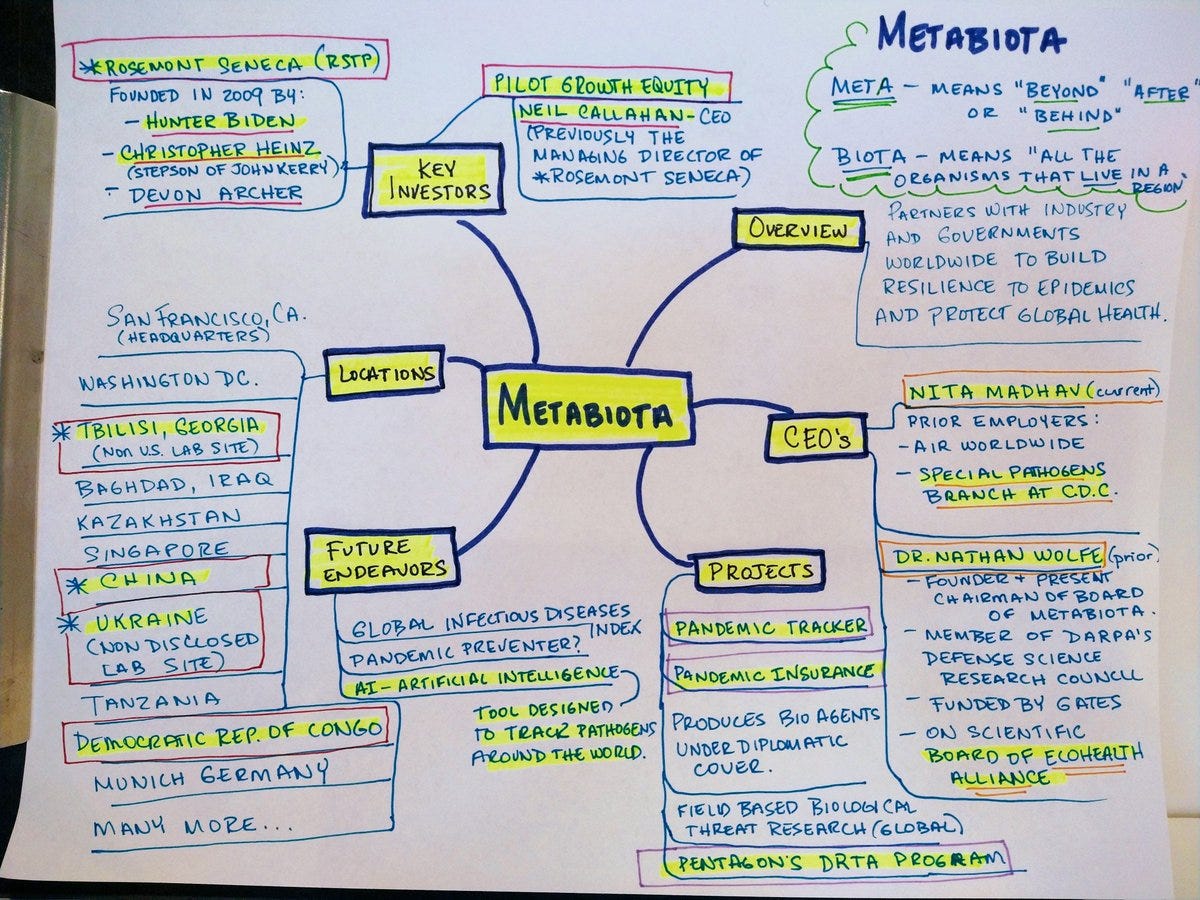 METABIOTA
META - MEANS "BEYOND" "AFTER"
OR "BEHIND"
BIOTA - MEANS "ALL THE
ORGANISMS THAT LIVE IN A
REGION"
*ROSEMONT SENECA (RSTP)
FOUNDED IN 2009 BY:
- HUNTER BIDEN
- CHRISTOPHER HEINZ
(STEPSON OF JOHN KERRY)
- DEVON ARCHER
KEY
INVESTORS
PILOT GROWTH EQUITY
NEIL CALLAHAN - CEO
(PREVIOUSLY THE
MANAGING DIRECTOR OF
*ROSEMONT SENECA)
OVERVIEW
PARTNERS WITH INDUSTRY
AND GOVERNMENTS
WORLDWIDE TO BUILD
RESILIENCE TO EPIDEMICS
AND PROTECT GLOBAL HEALTH.
METABIOTA
LOCATIONS
SAN FRANCISCO, CA.
(HEADQUARTERS)
WASHINGTON DC.
* TBILISI, GEORGIA
(NON U.S. LAB SITE)
BAGHDAD, IRAQ
KAZAKHSTAN
SINGAPORE
* CHINA
* UKRAINE
(NON DISCLOSED
LAB SITE)
TANZANIA
DEMOCRATIC REP. OF CONGO
MUNICH GERMANY
MANY MORE...
CEO's
NITA MADHAV (current)
PRIOR EMPLOYERS:
- AIR WORLDWIDE
- SPECIAL PATHOGENS
BRANCH AT C.D.C.
DR. NATHAN WOLFE (prior)
- FOUNDER + PRESENT
CHAIRMAN OF BOARD
OF METABIOTA.
- MEMBER OF DARPA'S
DEFENSE SCIENCE
RESEARCH COUNCIL
- FUNDED BY GATES
- ON SCIENTIFIC
BOARD OF ECOHEALTH
ALLIANCE
FUTURE
ENDEAVORS
GLOBAL INFECTIOUS DISEASES
INDEX
PANDEMIC PREVENTER?
AI - ARTIFICIAL INTELLIGENCE
TOOL DESIGNED
TO TRACK PATHOGENS
AROUND THE WORLD.
PROJECTS
PANDEMIC TRACKER
PANDEMIC INSURANCE
PRODUCES BIO AGENTS
UNDER DIPLOMATIC
COVER.
FIELD BASED BIOLOGICAL
THREAT RESEARCH (GLOBAL)
PENTAGON'S DRTA PROGRAM